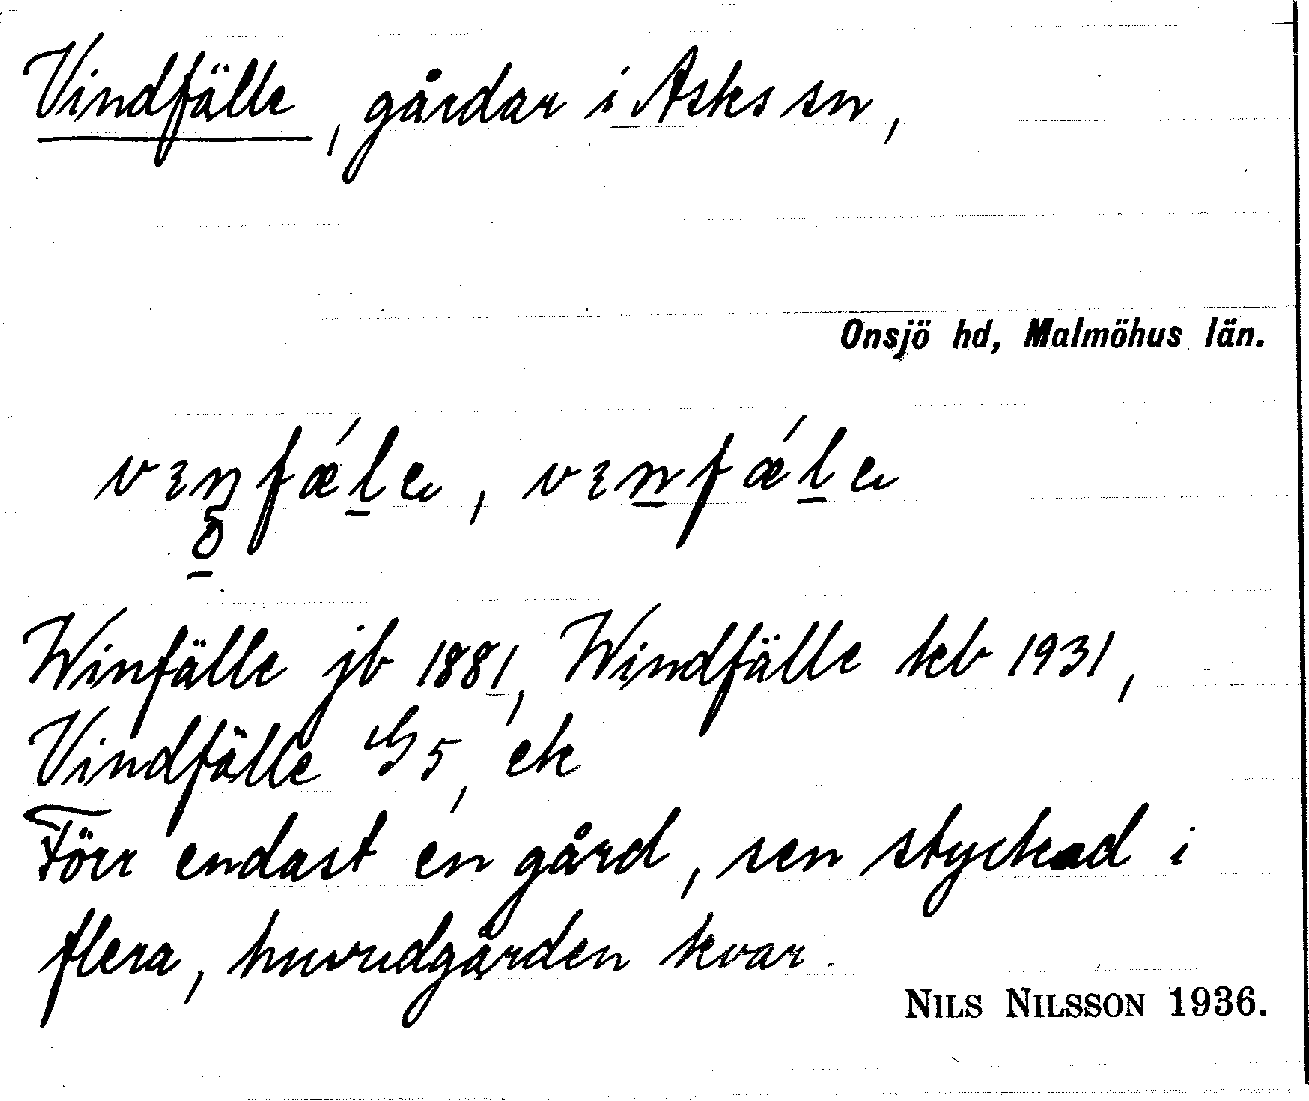 Vindfälle, gårdar i Asks sn,
Onsjö hd, Malmöhus län.
Winfälle jb 1881, Windfälle kb 1931,
Vindfälle G 5, ek
Förr endast en gård, sen styckad i
flera, huvudgården kvar.
NILS NILSSON 1936.